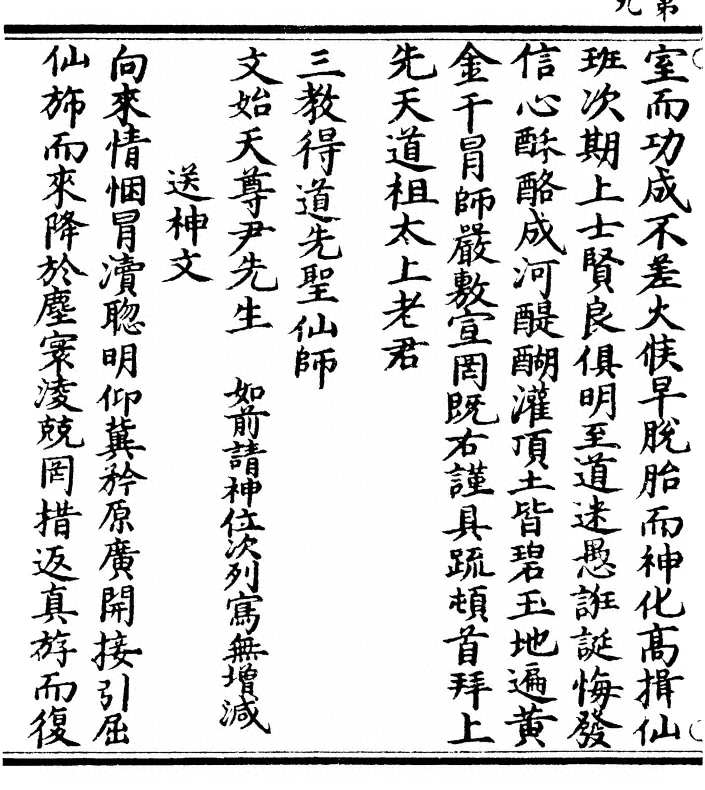 室而功成不差火候早脫胎而神化高揖仙
班次期上士賢良俱明至道迷愚誑誕悔發
信心酥酪成河醍醐灌頂土皆碧玉地遍黃
金干冒師嚴敷宣罔既右謹具䟽頓首拜上
先天道祖太上老君
三教得道先聖仙師
文始天尊尹先生 如前請神位次列寫無增減
送神文
向來情悃冒瀆聦明仰冀矜原廣開接引屈
仙斾而來降於塵寰淩兢罔措返真㳺而復